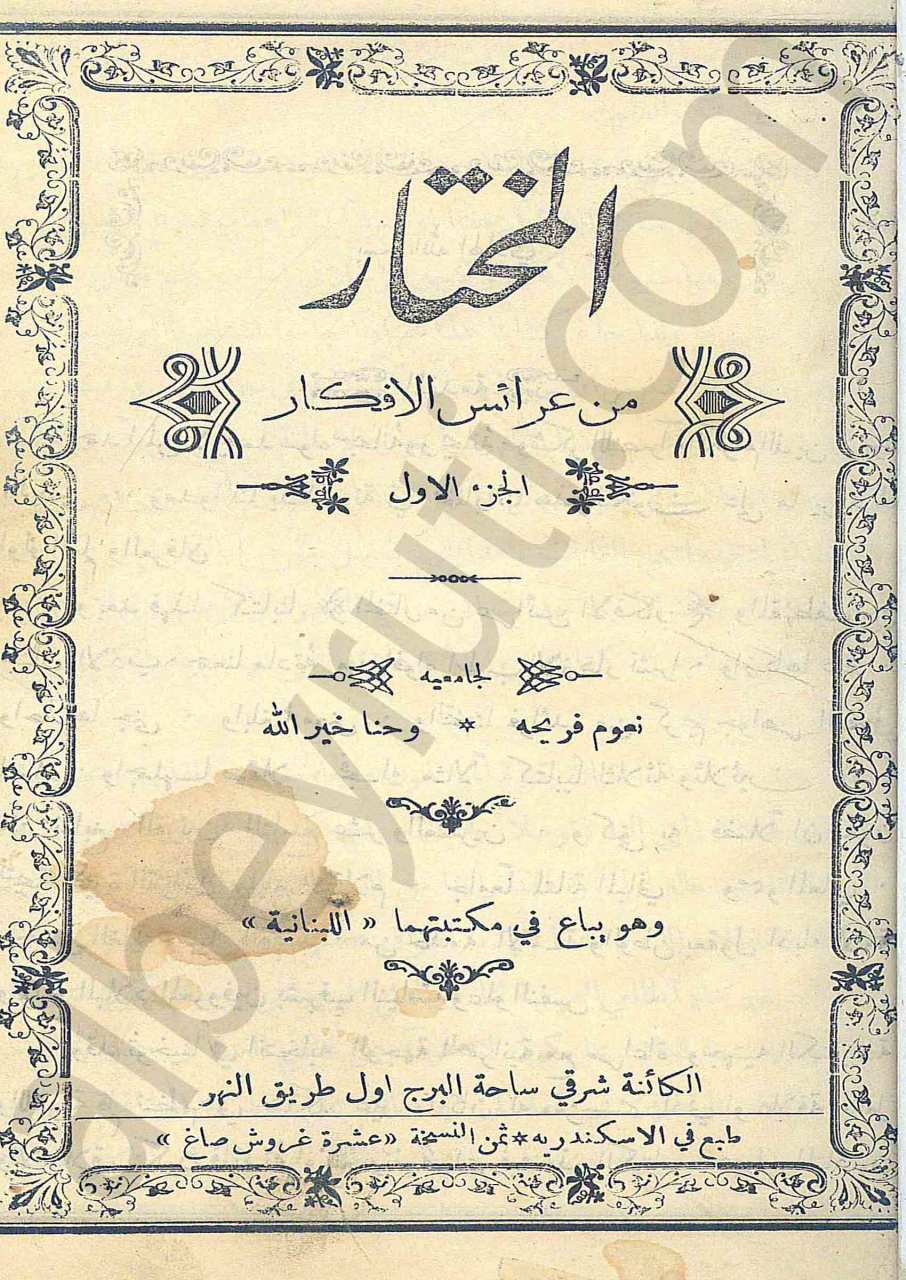 المختار
من عرائس الافكار
الجزء الاول
لجامعيه
نعوم فريحه * وحنا خير الله
وهو يباع في مكتبتهما « اللبنانية »
الكائنة شرقي ساحة البرج اول طريق النهر
طبع في الاسكندريه * ثمن النسخة « عشرة غروش صاغ »
albeyruti.com